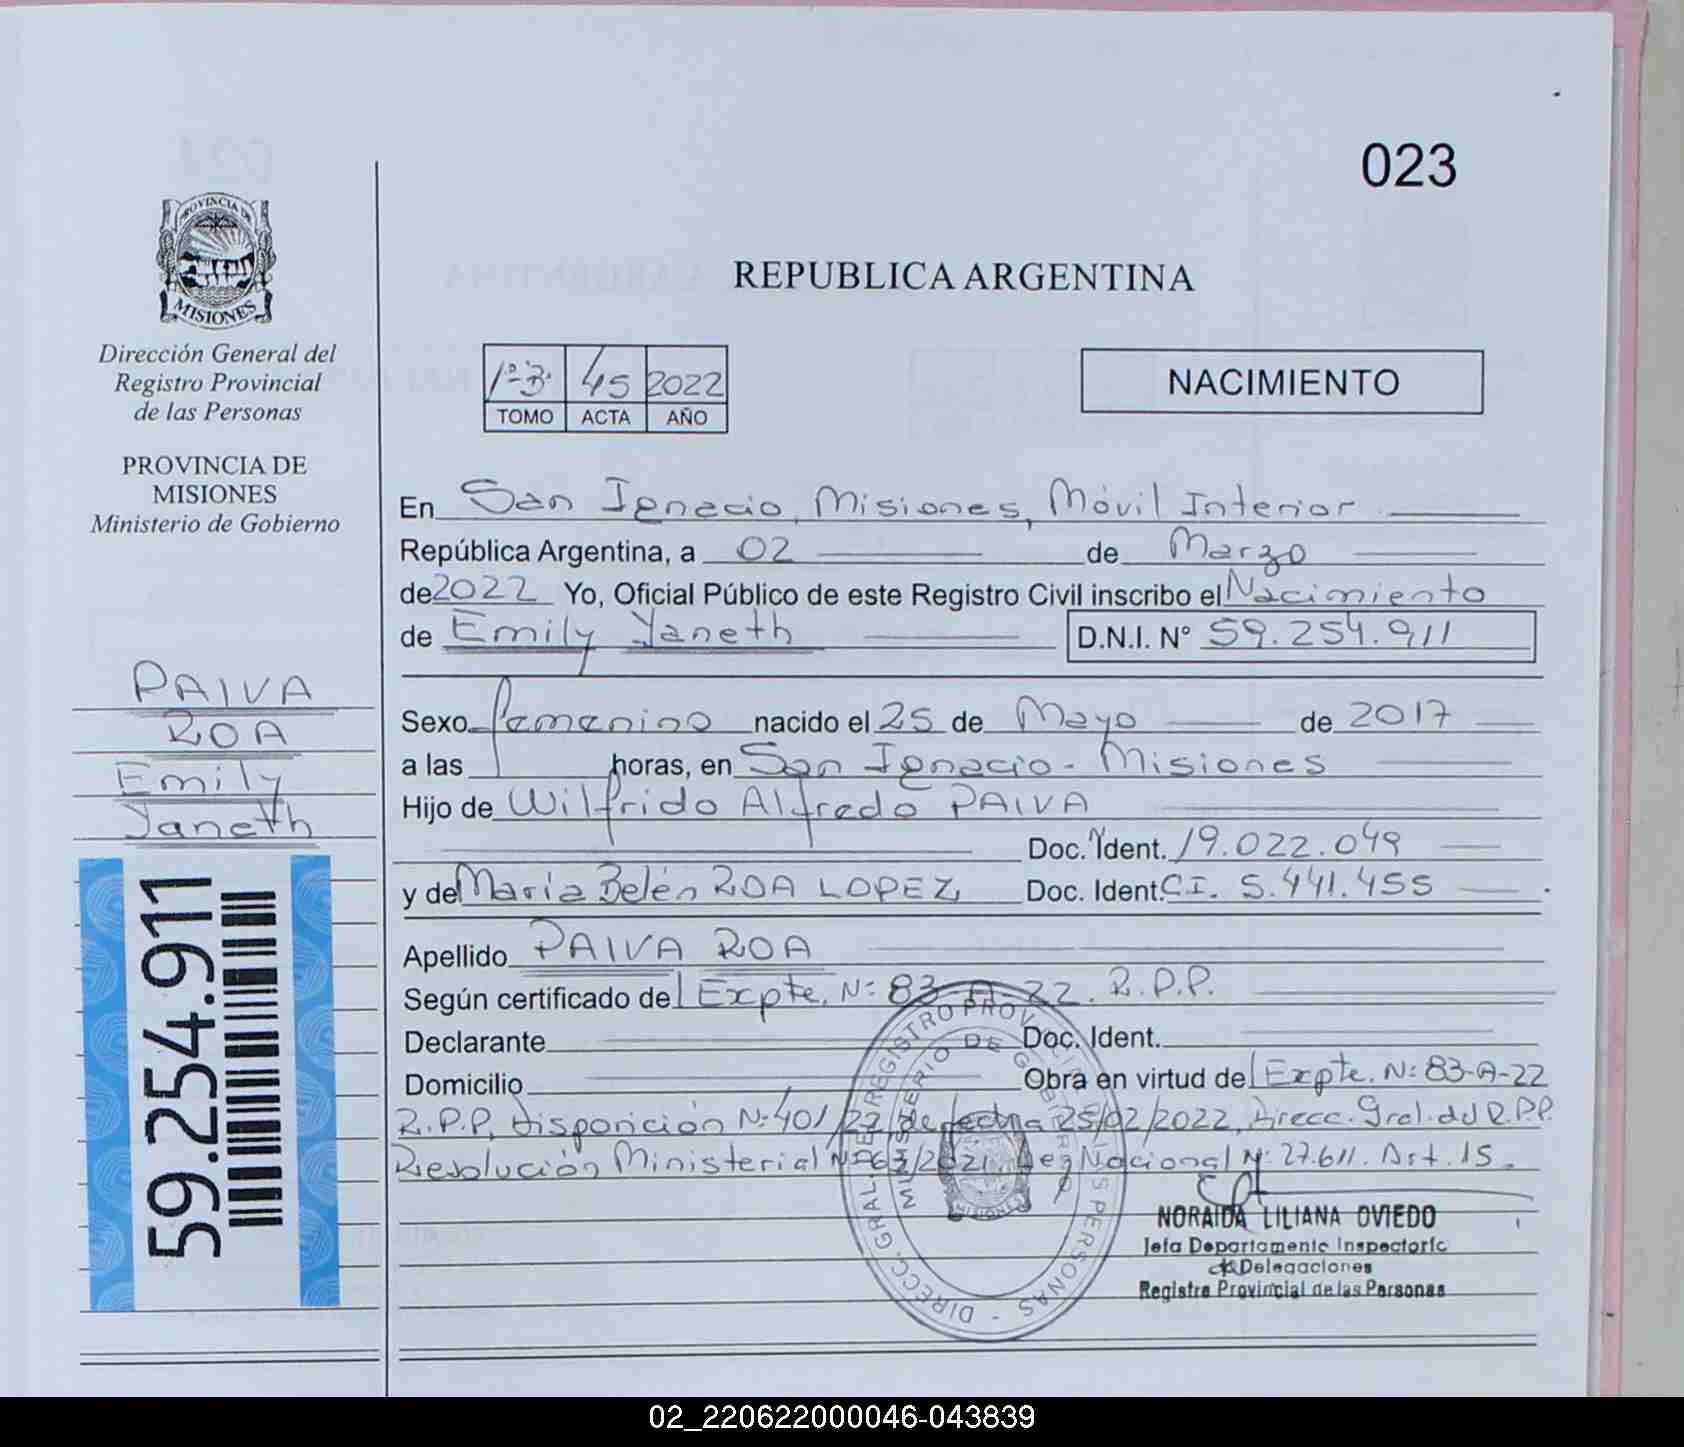 023
PROVINCIA DE
MISIONES
Dirección General del
Registro Provincial
de las Personas
PROVINCIA DE
MISIONES
Ministerio de Gobierno
PAIVA
ROA
Emily
Yaneth
59.254.911
REPUBLICA ARGENTINA
1º-B 45 2022
TOMO ACTA AÑO
NACIMIENTO
En San Ignacio, Misiones, Móvil Interior
República Argentina, a 02 de Marzo
de 2022 Yo, Oficial Público de este Registro Civil inscribo el Nacimiento
de Emily Yaneth D.N.I. N° 59.254.911
Sexo femenino nacido el 25 de Mayo de 2017
a las horas, en San Ignacio - Misiones
Hijo de Wilfrido Alfredo PAIVA
Doc. Ident. 19.022.049
y de María Belén ROA LOPEZ Doc. Ident. CI. 5.441.455
Apellido PAIVA ROA
Según certificado de Expte. Nº: 83-A-22. R.P.P.
Declarante Doc. Ident.
Domicilio Obra en virtud de Expte. Nº: 83-A-22
R.P.P. Disposición Nº: 401/22 de fecha 25/02/2022, Direcc. Gral. del R.P.P.
Resolución Ministerial /2021 Ley Nacional Nº: 27.611. Art. 15.
DIRECC. GRAL. DE REGISTRO PROVINCIAL PERSONAS
MINISTERIO DE GOBIERNO
MISIONES
NORAIDA LILIANA OVIEDO
Jefa Departamento Inspectoría
de Delegaciones
Registro Provincial de las Personas
02_220622000046-043839